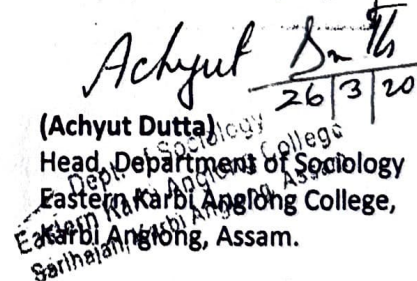 Achyut Dutta
26|3|20
(Achyut Dutta)
Head, Department of Sociology
Eastern Karbi Anglong College,
Karbi Anglong, Assam.
Dept. of Sociology
Eastern Karbi Anglong College
Sarihajan, Karbi Anglong, Assam